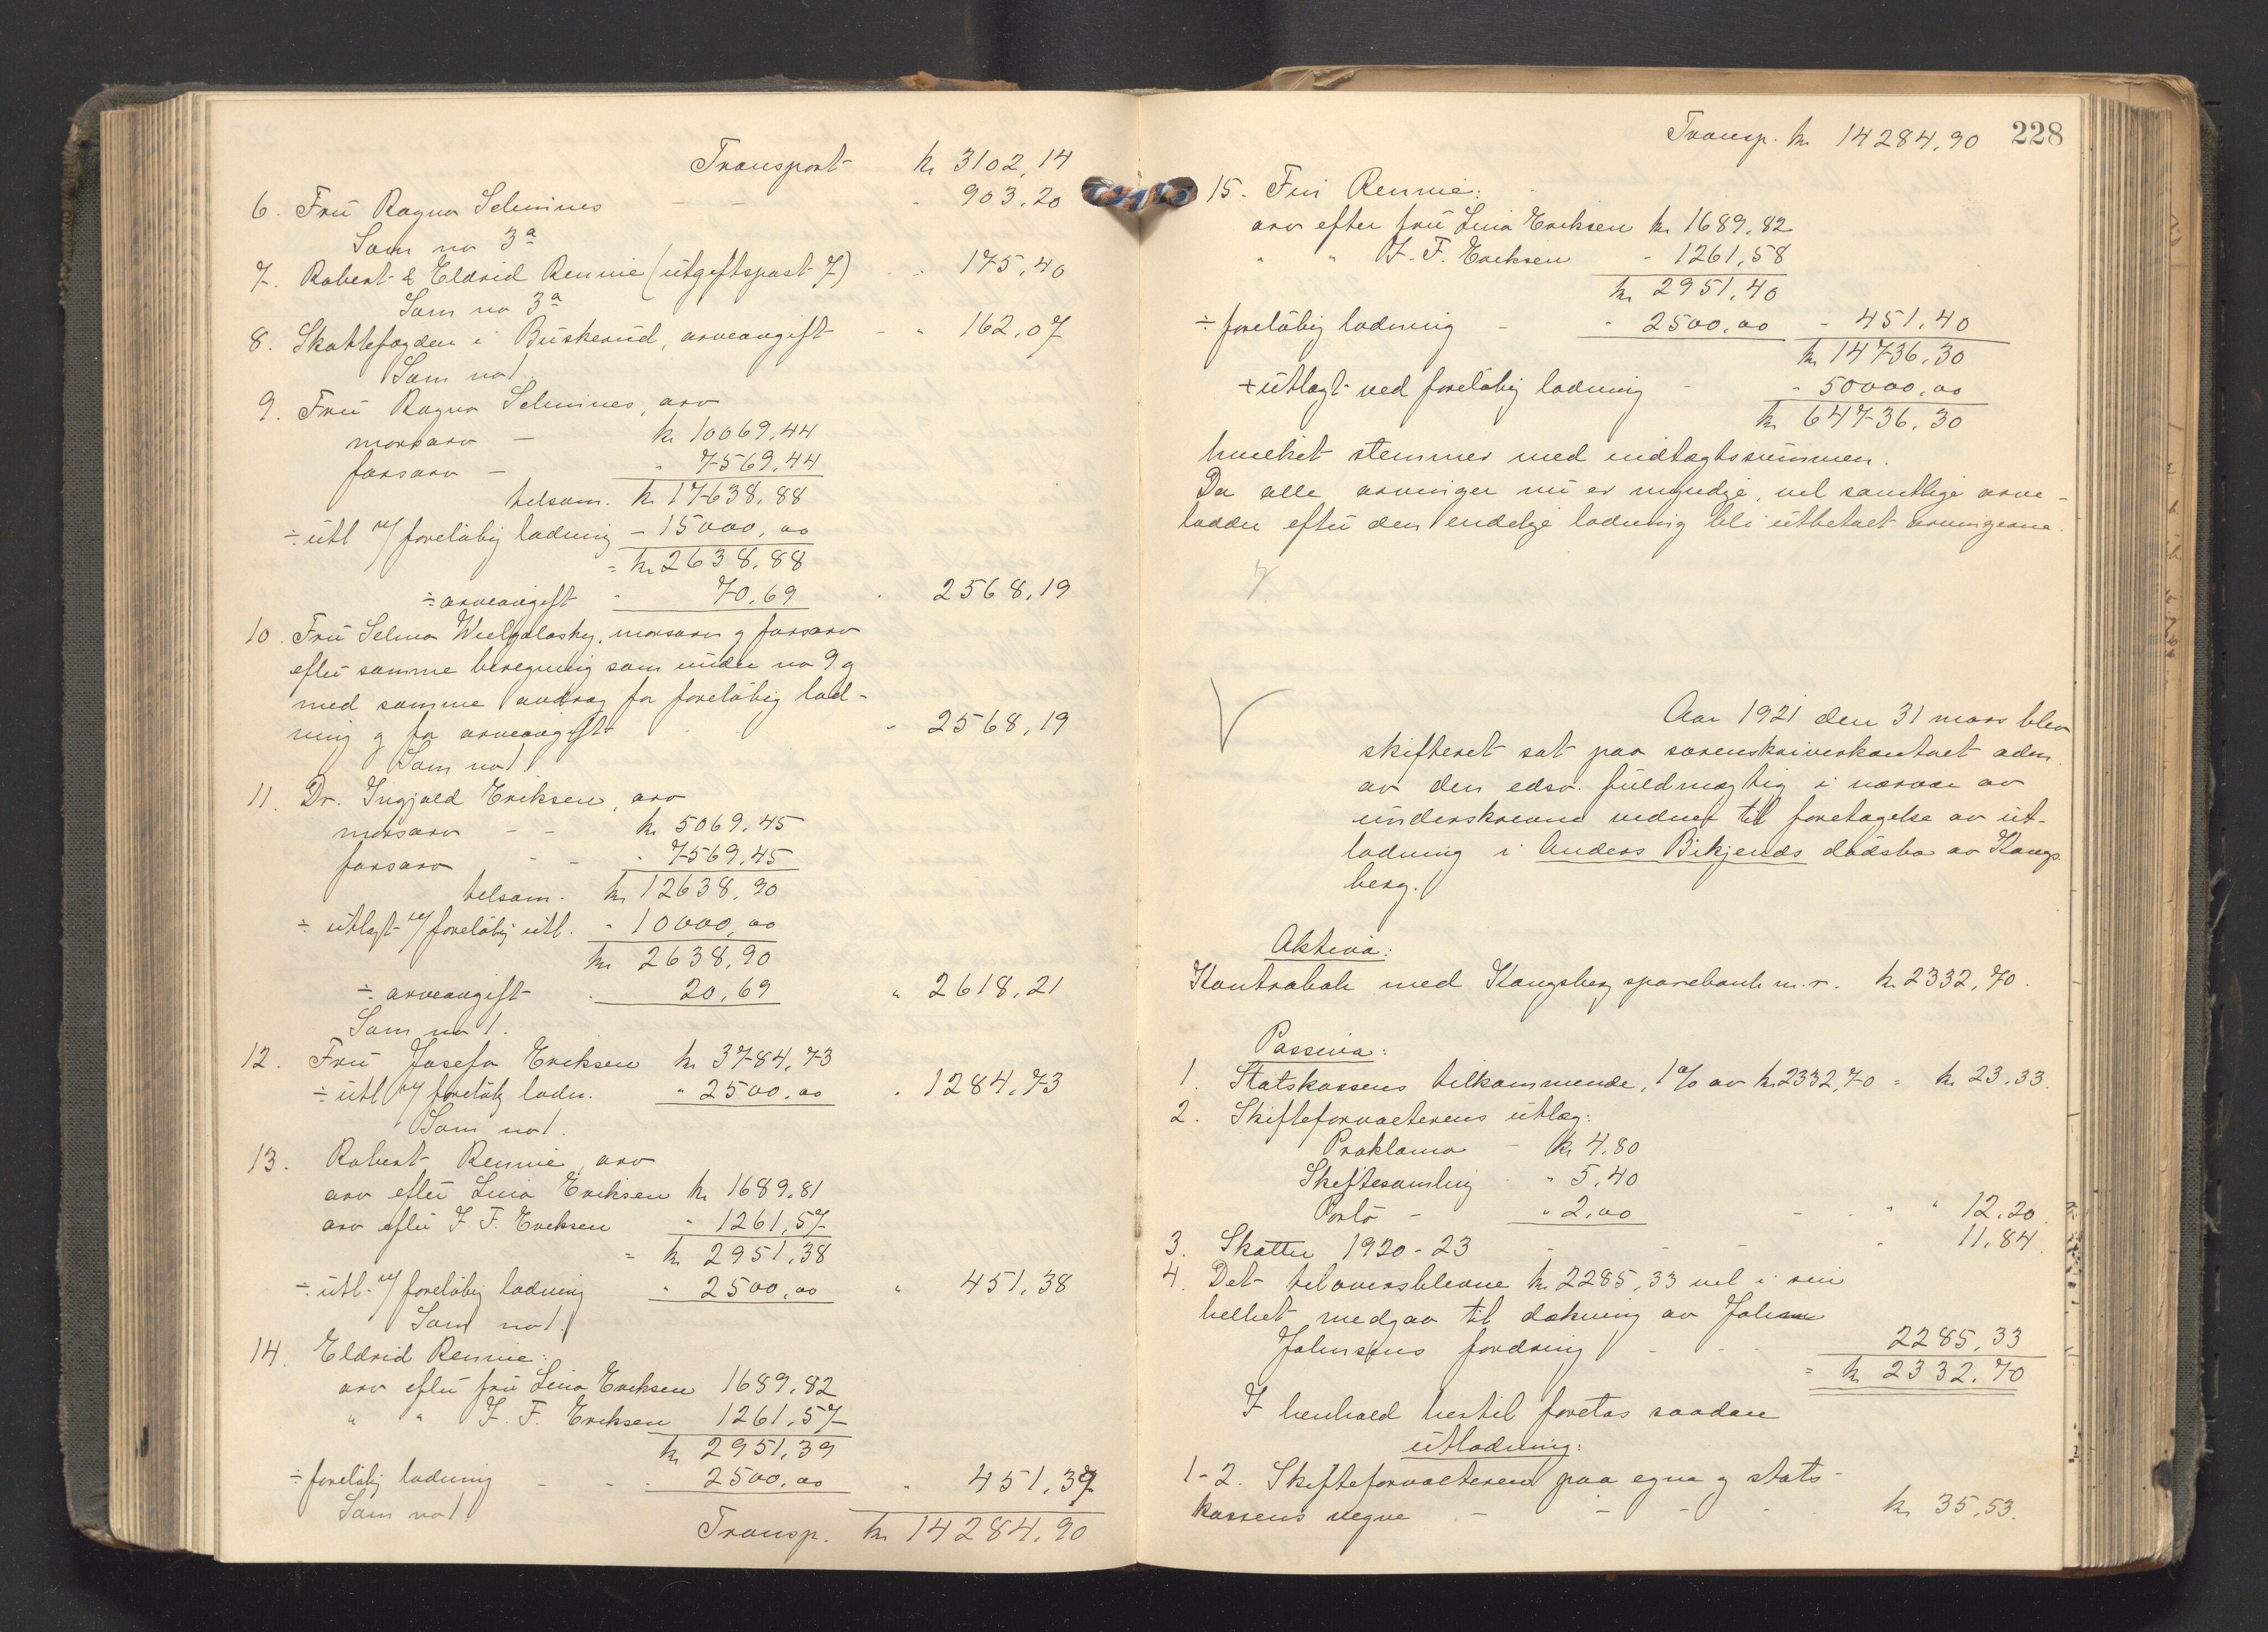 Transport kr 3102,14
6. Fru Ragna Selmines - - " 903,20
Som no 3a
7. Robert & Eldrid Rennie (utgiftspost 7) " 175,40
Som no 3a
8. Skattefogden i Buskerud, arveavgift - " 162,07
Som no 1.
9. Fru Ragna Selmines, arv
morsarv - kr 10069,44
farsarv - " 7569,44
tilsam. kr 17638,88
÷ utl v/ foreløbig lodning - 15000,00
= kr 2638,88
÷ arveavgift " 70,69 " 2568,19
10. Fru Selma, morsarv og farsarv
efter samme beregning som under no 9 og
med samme avdrag for foreløbig lod-
ning og for arveavgift " 2568,19
Som no 1
11. Dr. Ingjald Eriksen, arv
morsarv - - kr 5069,45
farsarv - - " 7569,45
tilsam. kr 12638,90
÷ utlagt v/ foreløbig utl. " 10000,00
kr 2638,90
÷ arveavgift " 20,69 " 2618,21
Som no 1.
12. Fru Josefa Eriksen kr 3784,73
÷ utl v/ foreløbig lodn. " 2500,00 " 1284,73
Som no 1.
13. Robert Rennie, arv
arv efter Lina Eriksen kr 1689,81
arv efter J. F. Eriksen " 1261,57
= kr 2951,38
÷ utl. v/ foreløbig lodning " 2500,00 " 451,38
Som no 1.
14. Eldrid Rennie:
arv efter fru Lina Eriksen 1689,82
" " J. F. Eriksen 1261,57
kr 2951,39
÷ foreløbig lodning - - - 2500,00 " 451,39
Som no 1.
Transp. kr 14284,90
Transp. kr 14284,90 228
15. Finn Rennie:
arv efter fru Lina Eriksen kr 1689,82
" " J. F. Eriksen " 1261,58
kr 2951,40
÷ foreløbig lodning - " 2500,00 - 451,40
kr 14736,30
+ utlagt ved foreløbig lodning - " 50000,00
kr 64736,30
hvilket stemmer med indtægtssummen.
Da alle arvinger nu er myndige, vil samtlige arve-
lodder efter den endelige lodning bli utbetalt arvingerne.
Aar 1921 den 31 mars blev
skifteret sat paa sorenskriverkontoret adm.
av den edsv. fuldmægtig i nærvær av
underskrevne vidner til foretagelse av ut-
lodning i Anders Bikjends dødsbo av Kongs
berg.
Aktiva:
Kontrabok med Kongsberg sparebank m. r. kr 2332,70.
Passiva:
1. Statskassens tilkommende, 1% av kr 2332,70 = kr 23,33.
2. Skifteforvalterens utlæg:
Proklama - kr 4,80
Skiftesamling " 5,40
Porto - " 2,00 - " " 12,20
3. Skatter 1920-23 - - - " 11,84
4. Det tiloversblevne kr 2285,33 vil i sin
helhet medgaa til dækning av Johan
Johnsens fordring - - 2285,33
= kr 2332,70
I henhold hertil foretas saadan
utlodning:
1-2. Skifteforvalteren paa egne og stats-
kassens vegne - - - kr 35,53.